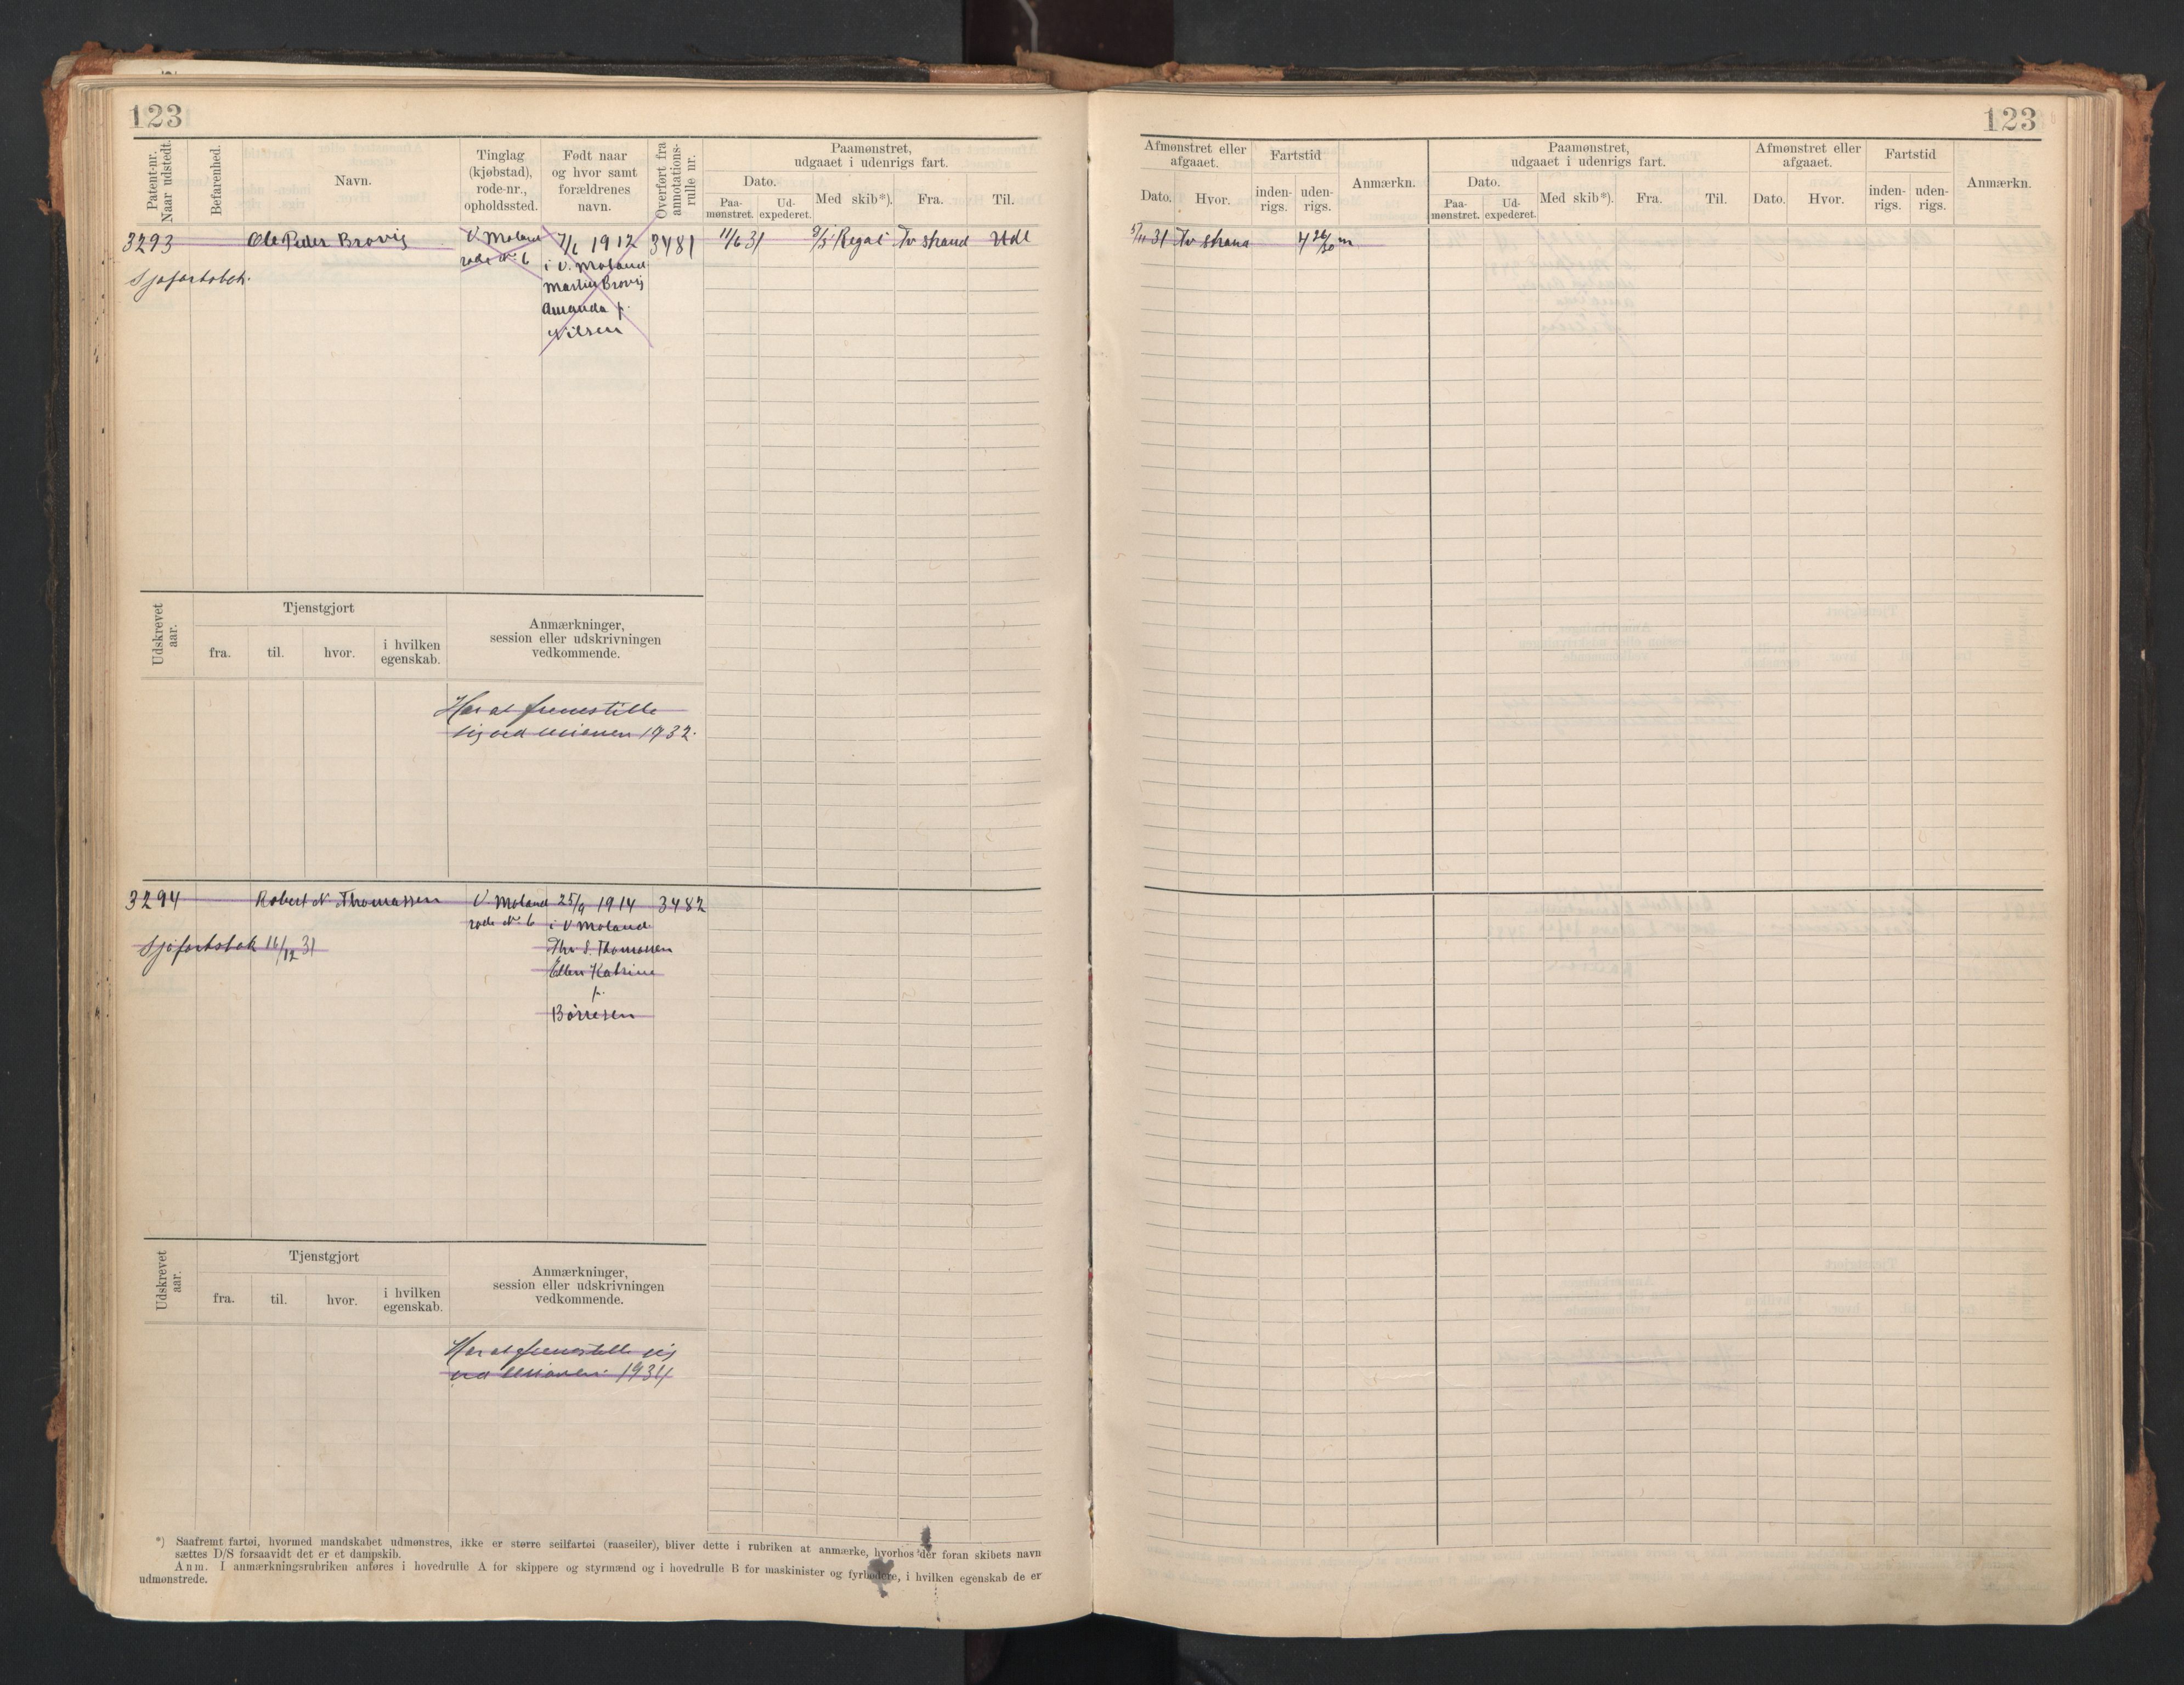 123
123
Patent-nr.
Naar udstedt.
Befarenhed.
Navn.
Tinglag
(kjøbstad),
rode-nr.,
opholdssted.
Født naar
og hvor samt
forældrenes
navn.
Overført fra
annotations-
rulle nr.
Paamønstret,
udgaaet i udenrigs fart.
Dato.
Paa-
mønstret.
Ud-
expederet.
Med skib*).
Fra.
Til.
Afmønstret eller
afgaaet.
Dato.
Hvor.
Fartstid
inden-
rigs.
uden-
rigs.
Anmærkn.
Paamønstret,
udgaaet i udenrigs fart.
Dato.
Paa-
mønstret.
Ud-
expederet.
Med skib*).
Fra.
Til.
Afmønstret eller
afgaaet.
Dato.
Hvor.
Fartstid
inden-
rigs.
uden-
rigs.
Anmærkn.
3293
Ole Peder Brovig
V. Moland
rode No 6
7/6 1912
i V. Moland
Martin Brovig
Amanda f.
Nilsen
3481
11/6 31
Regal
Tv strand
Udl
5/11 31
Tv strand
4 26/30 m
Udskrevet
aar.
Tjenstgjort
fra.
til.
hvor.
i hvilken
egenskab.
Anmærkninger,
session eller udskrivningen
vedkommende.
Har at fremstille
sig ved sesionen 1932.
3294
Robert N. Thomassen
V. Moland
rode No 6
25/9 1914
i V Moland
S. Thomassen
Ellen Katrine
f.
Börresen
3482
Sjøfartsbok 16/12 31
Udskrevet
aar.
Tjenstgjort
fra.
til.
hvor.
i hvilken
egenskab.
Anmærkninger,
session eller udskrivningen
vedkommende.
Har at fremstille sig
ved sesionen 1934
*) Saafremt fartøi, hvormed mandskabet udmønstres, ikke er større seilfartøi (raaseiler), bliver dette i rubriken at anmærke, hvorhos der foran skibets navn
sættes D/S forsaavidt det er et dampskib.
Anm. I anmærkningsrubriken anføres i hovedrulle A for skippere og styrmænd og i hovedrulle B for maskinister og fyrbødere, i hvilken egenskab de er
udmønstrede.